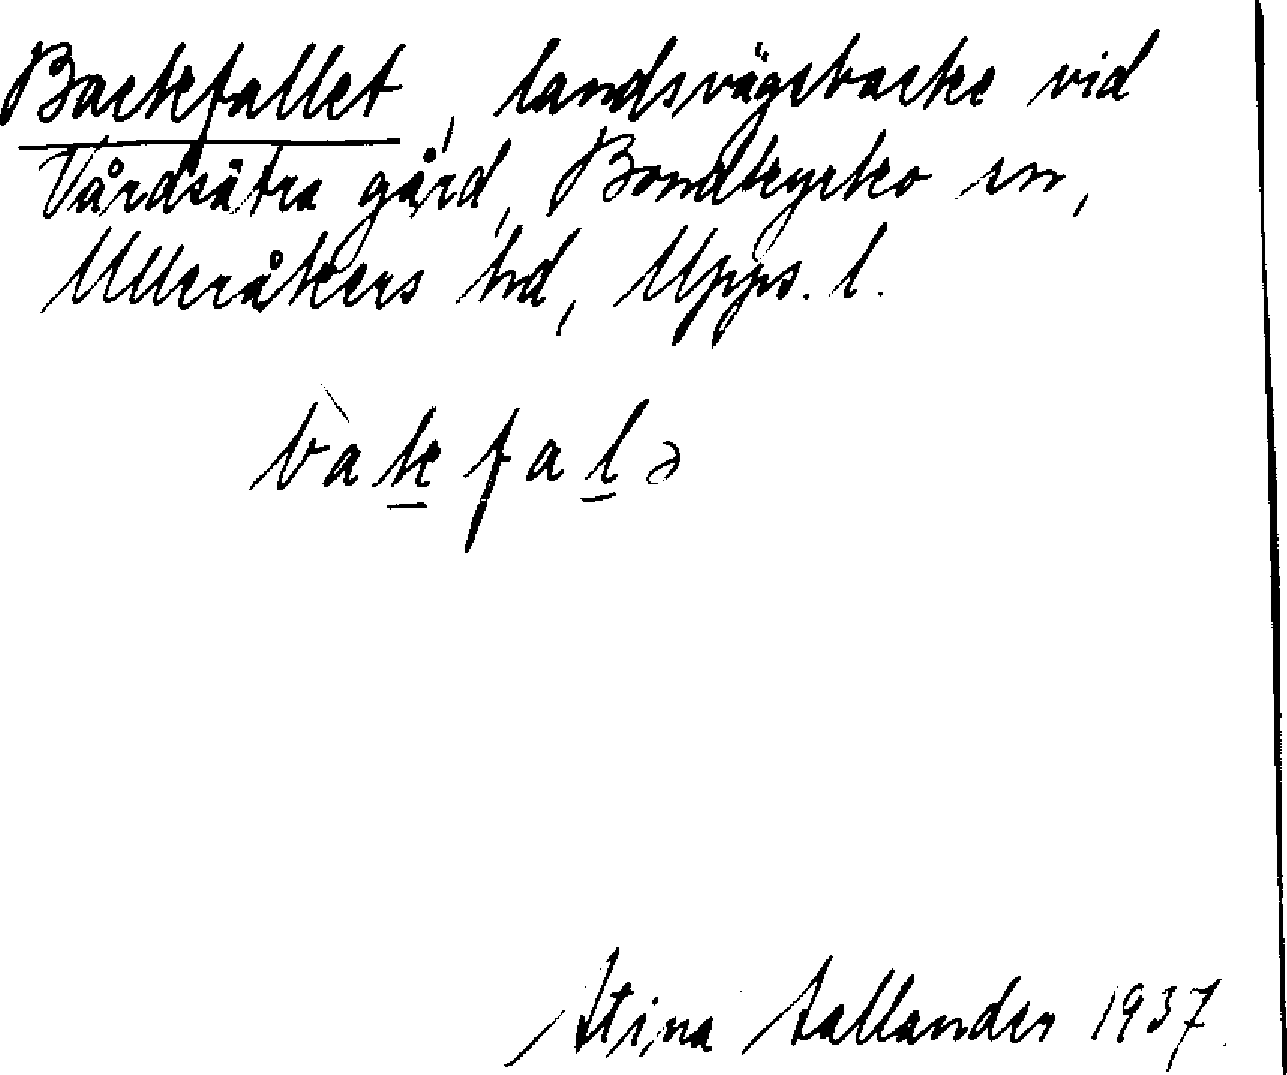 Backfallet, landsvägsbacke vid
Vårdsätra gård, Bondkyrko sn,
Ulleråkers hd, Upps. l.
bàkfalə
Stina Sallander 1937.